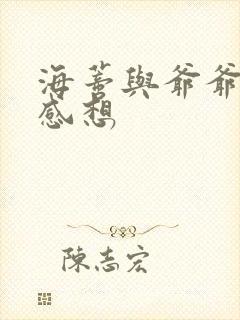 海蒂與爺爺
感想
陳志宏